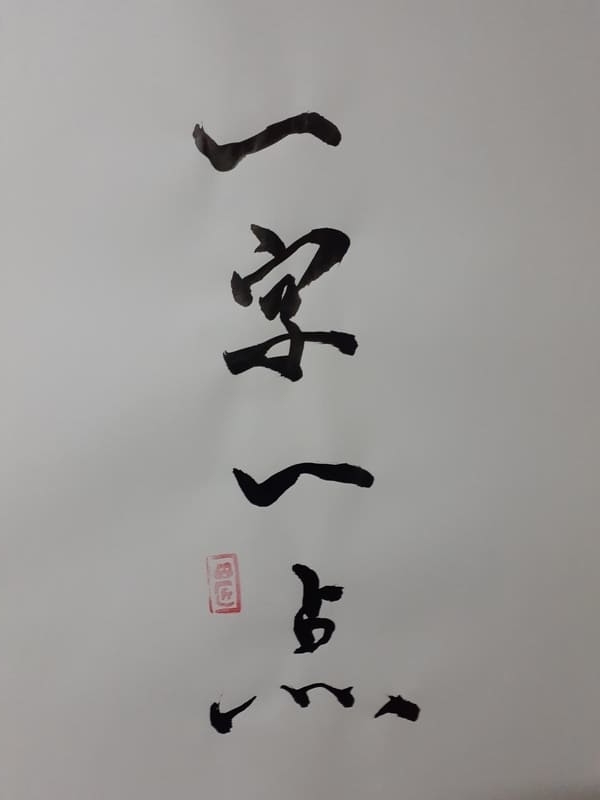 一字一点